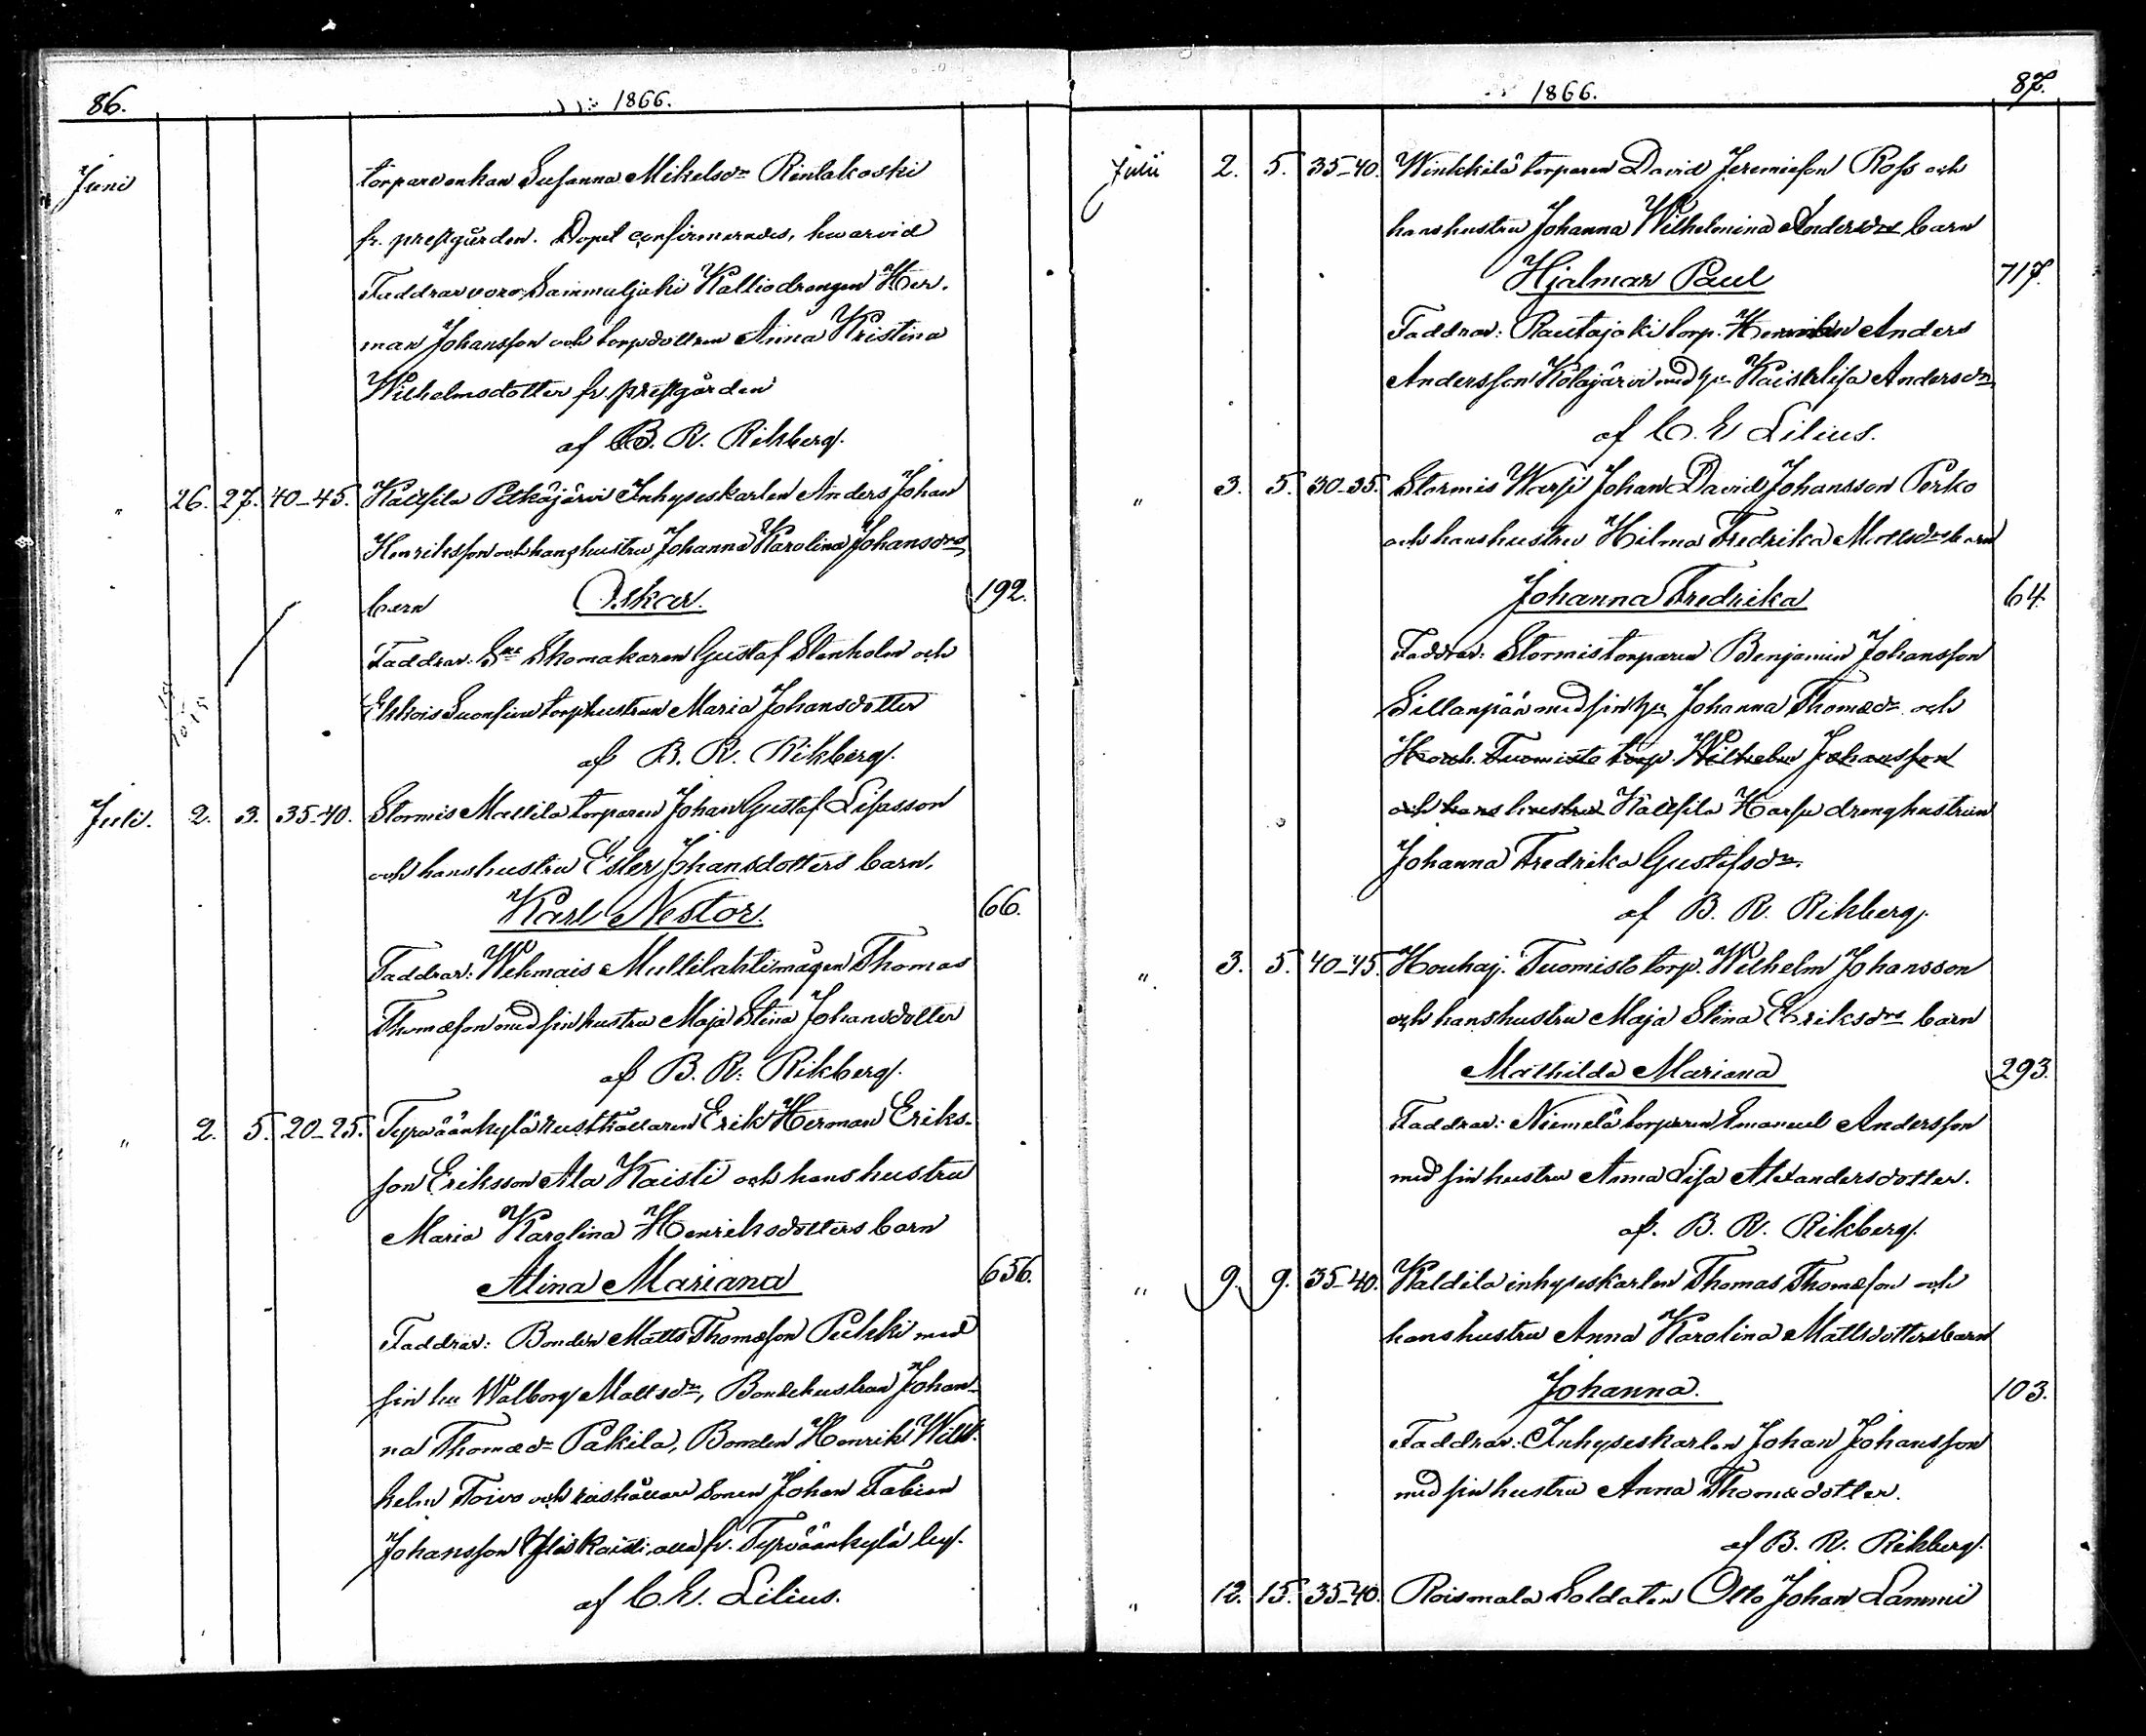 86. 1866.
Juni torparenkan Susanna Mikelsdr Rintakoski
fr. prestgården. Dopet confirmerades, hvarvid
Faddrar voro, Sammaljoki Kallio drengen Her-
man Johansson och torpdottren Anna Kristina
Wilhelmsdotter fr. prestgården
af B. R. Rikberg.
" 26. 27. 40-45. Kallfila Pitkäjärvi Inhyseskarlen Anders Johan
Henriksson och hans hustru Johanna Karolina Johansdrs
barn Oskar. 192.
Faddrar: Skomakaren Gustaf Stenholm och
Ekkois torphustrun Maria Johansdotter
af B. R. Rikberg.
Juli. 2. 3. 35-40. Stormis Mattila torparen Johan Gustaf Lisasson
och hans hustru Ester Johansdotters barn.
Karl Nestor. 66.
Faddrar: Wehmais Multilahti mågen Thomas
Thomasson med sin hustru Maja Stina Johansdotter
af B. R. Rikberg.
" 2. 5. 20-25. Tyrväänkylä rusthållaren Erik Herman Eriks-
son Eriksson Ala Kaisti och hans hustru
Maria Karolina Henriksdotters barn
Alina Mariana 656.
Faddrar: Bonden Matts Thomasson Puhki med
sin hu Walborg Mattsdr, Bondehustrun Johan-
na Thomasdr Pakila, Bonden Henrik Wilh
helm Toivo och rusthållare sonen Johan Fabian
Johansson Kaisti, alla fr. Tyrväänkylä by.
af C. E. Lilius.
1866. 87.
Juli 2. 5. 35-40. Winkkilä torparen David Jeremiesson Ross och
hans hustru Johanna Wilhelmina Andersdrs barn
Hjalmar Paul 717.
Faddrar: Rautajoki torp. Anders
Andersson Kolajärvi med hu Kaisa Lisa Andersdr
af C. E. Lilius.
" 3. 5. 30-35. Stormis Warsi Johan David Johansson Perko
och hans hustru Hilma Fredrika Mattsdrs barn
Johanna Fredrika 64.
Faddrar: Stormis torparen Benjamin Johansson
Sillanpää med sin hu Johanna Thomasdr och
Houh. Tuomisto torp. Wilhelm Johansson
och hans hustru Kallfila Harju drenghustrun
Johanna Fredrika Gustafsdr.
af B. R. Rikberg.
" 3. 5. 40-45. Houhaj. Tuomisto torp. Wilhelm Johansson
och hans hustru Maja Stina Eriksdrs barn
Mathilda Mariana 293.
Faddrar: Niemelä torparen Emanuel Andersson
med sin hustru Anna Lisa Alexandersdotter.
af. B. R. Rikberg.
" 9. 9. 35-40. Kaldila inhyseskarlen Thomas Thomasson och
hans hustru Anna Karolina Mattsdotters barn
Johanna. 103.
Faddrar: Inhyseskarlen Johan Johansson
med sin hustru Anna Thomasdotter.
af B. R. Rikberg.
" 12. 15. 35-40. Roismala Soldaten Otto Johan Lammi